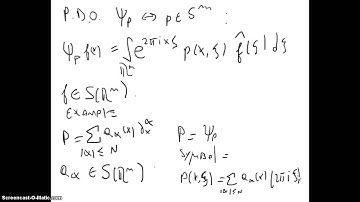 P.D.O. Ψ_p ↔ p ∈ S^m :
Ψ_p f(x) = ∫_{ℝ^n} e^{2πi x·ξ} p(x,ξ) f̂(ξ) dξ
f ∈ S(ℝ^n).
EXAMPLE
P = Σ_{|α|≤N} a_α(x) ∂_x^α
P = Ψ_p
SYMBOL =
a_α ∈ S(ℝ^n).
p(x,ξ) = Σ_{|α|≤N} a_α(x) (2πi ξ)
Screencast-O-Matic.com